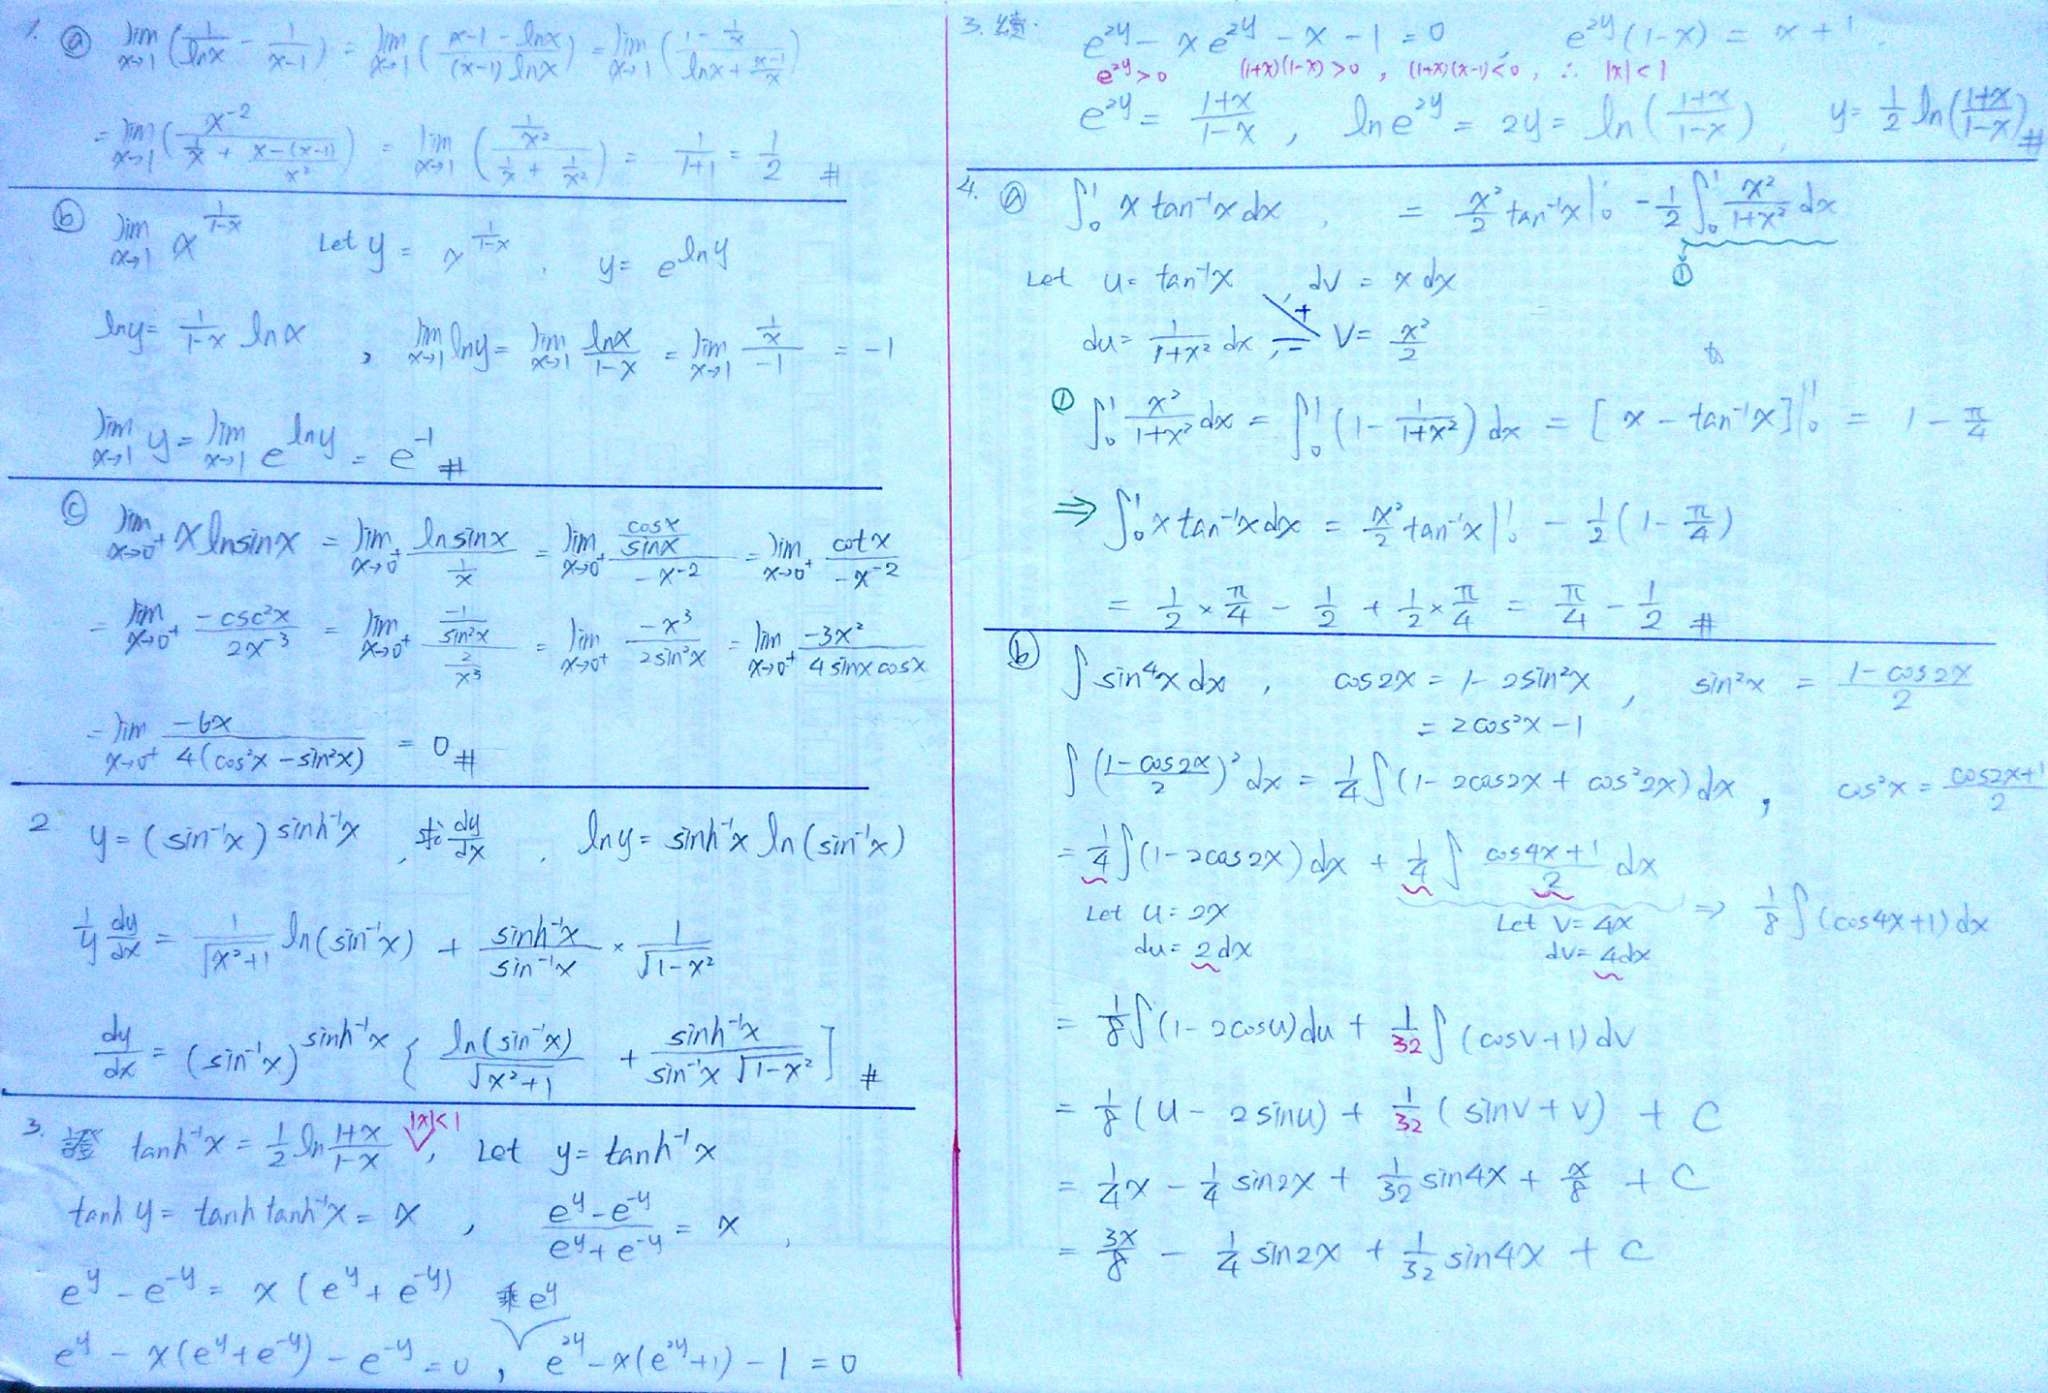 1. ⓐ lim x→1 (1/lnx - 1/(x-1)) = lim x→1 ((x-1-lnx)/((x-1)lnx)) = lim x→1 ((1-1/x)/(lnx+(x-1)/x))
= lim x→1 (x⁻²/(1/x + (x-(x-1))/x²)) = lim x→1 ((1/x²)/(1/x + 1/x²)) = 1/(1+1) = 1/2 #
ⓑ lim x→1 x^(1/(1-x)) Let y = x^(1/(1-x)), y = e^(lny)
lny = 1/(1-x) lnx , lim x→1 lny = lim x→1 lnx/(1-x) = lim x→1 (1/x)/(-1) = -1
lim x→1 y = lim x→1 e^(lny) = e⁻¹ #
ⓒ lim x→0⁺ x lnsinx = lim x→0⁺ lnsinx/(1/x) = lim x→0⁺ (cosx/sinx)/(-x⁻²) = lim x→0⁺ cotx/(-x⁻²)
= lim x→0⁺ -csc²x/(2x⁻³) = lim x→0⁺ (-1/sin²x)/(2/x³) = lim x→0⁺ -x³/(2sin²x) = lim x→0⁺ -3x²/(4sinxcosx)
= lim x→0⁺ -6x/(4(cos²x-sin²x)) = 0 #
2 y = (sin⁻¹x)^(sinh⁻¹x) , 求 dy/dx , lny = sinh⁻¹x ln(sin⁻¹x)
1/y dy/dx = 1/√(x²+1) ln(sin⁻¹x) + sinh⁻¹x/sin⁻¹x × 1/√(1-x²)
dy/dx = (sin⁻¹x)^(sinh⁻¹x) { ln(sin⁻¹x)/√(x²+1) + sinh⁻¹x/(sin⁻¹x√(1-x²)) ] #
3. 證 tanh⁻¹x = 1/2 ln (1+x)/(1-x) |x|<1 , Let y = tanh⁻¹x
tanh y = tanh tanh⁻¹x = x , (e^y-e^(-y))/(e^y+e^(-y)) = x ,
e^y - e^(-y) = x(e^y+e^(-y)) 乘 e^y
e^y - x(e^y+e^(-y)) - e^(-y) = 0 , e^(2y) - x(e^(2y)+1) - 1 = 0
3. 續. e^(2y) - xe^(2y) - x - 1 = 0 , e^(2y)(1-x) = x+1 ,
e^(2y)>0 (1+x)(1-x)>0 , (1+x)(x-1)<0 , ∴ |x|<1
e^(2y) = (1+x)/(1-x) , lne^(2y) = 2y = ln((1+x)/(1-x)) , y = 1/2 ln((1+x)/(1-x)) #
4. ⓐ ∫₀¹ x tan⁻¹x dx , = x²/2 tan⁻¹x|₀¹ - 1/2 ∫₀¹ x²/(1+x²) dx
①
Let u = tan⁻¹x , dv = x dx
+
du = 1/(1+x²) dx , - v = x²/2
① ∫₀¹ x²/(1+x²) dx = ∫₀¹ (1 - 1/(1+x²)) dx = [x - tan⁻¹x]|₀¹ = 1 - π/4
⇒ ∫₀¹ x tan⁻¹x dx = x²/2 tan⁻¹x|₀¹ - 1/2 (1 - π/4)
= 1/2 × π/4 - 1/2 + 1/2 × π/4 = π/4 - 1/2 #
ⓑ ∫ sin⁴x dx , cos2x = 1 - 2sin²x , sin²x = (1-cos2x)/2
= 2cos²x - 1
∫ ((1-cos2x)/2)² dx = 1/4 ∫ (1 - 2cos2x + cos²2x) dx , cos²x = (cos2x+1)/2
= 1/4 ∫ (1 - 2cos2x) dx + 1/4 ∫ (cos4x+1)/2 dx ⇒ 1/8 ∫ (cos4x+1) dx
Let u = 2x Let v = 4x
du = 2dx dv = 4dx
= 1/8 ∫ (1 - 2cosu) du + 1/32 ∫ (cosv+1) dv
= 1/8 (u - 2sinu) + 1/32 (sinv + v) + C
= 1/4 x - 1/4 sin2x + 1/32 sin4x + x/8 + C
= 3x/8 - 1/4 sin2x + 1/32 sin4x + C